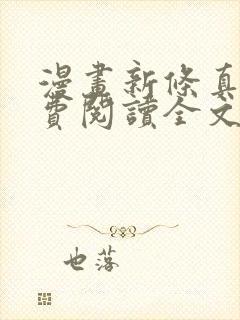 漫畫新條真
費閱讀全文
也落